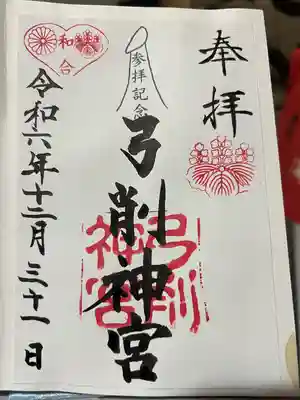 奉拝
参拝記念
弓削神宮
弓削
神宮
和合
令和六年十二月三十一日